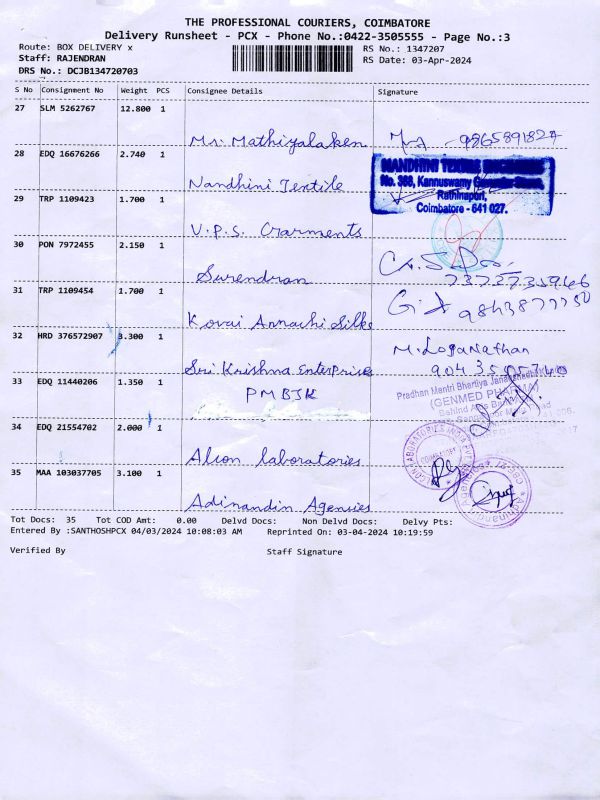 THE PROFESSIONAL COURIERS, COIMBATORE
Delivery Runsheet - PCX - Phone No.:0422-3505555 - Page No.:3
Route: BOX DELIVERY x
RS No.: 1347207
Staff: RAJENDRAN
RS Date: 03-Apr-2024
DRS No.: DCJB134720703
S No Consignment No Weight PCS Consignee Details Signature
27 SLM 5262767 12.800 1
Mr. Mathiyalaken
28 EDQ 16676266 2.740 1
Nandhini Textile
No. 368, Kannuswamy
Rathinapuri,
Coimbatore - 641 027.
29 TRP 1109423 1.700 1
V.P.S. Garments
30 PON 7972455 2.150 1
Surendran
31 TRP 1109454 1.700 1
Kovai Annachi Silks
32 HRD 376572907 3.300 1
M. Loganathan
Sri Krishna Enterprise
33 EDQ 11440206 1.350 1
PMBJK
Pradhan Mantri Bhartiya
(GENMED
34 EDQ 21554702 2.000 1
Alcon laboratories
35 MAA 103037705 3.100 1
Adinandin Agencies
Tot Docs: 35 Tot COD Amt: 0.00 Delvd Docs: Non Delvd Docs: Delvy Pts:
Entered By :SANTHOSHPCX 04/03/2024 10:08:03 AM Reprinted On: 03-04-2024 10:19:59
Verified By Staff Signature